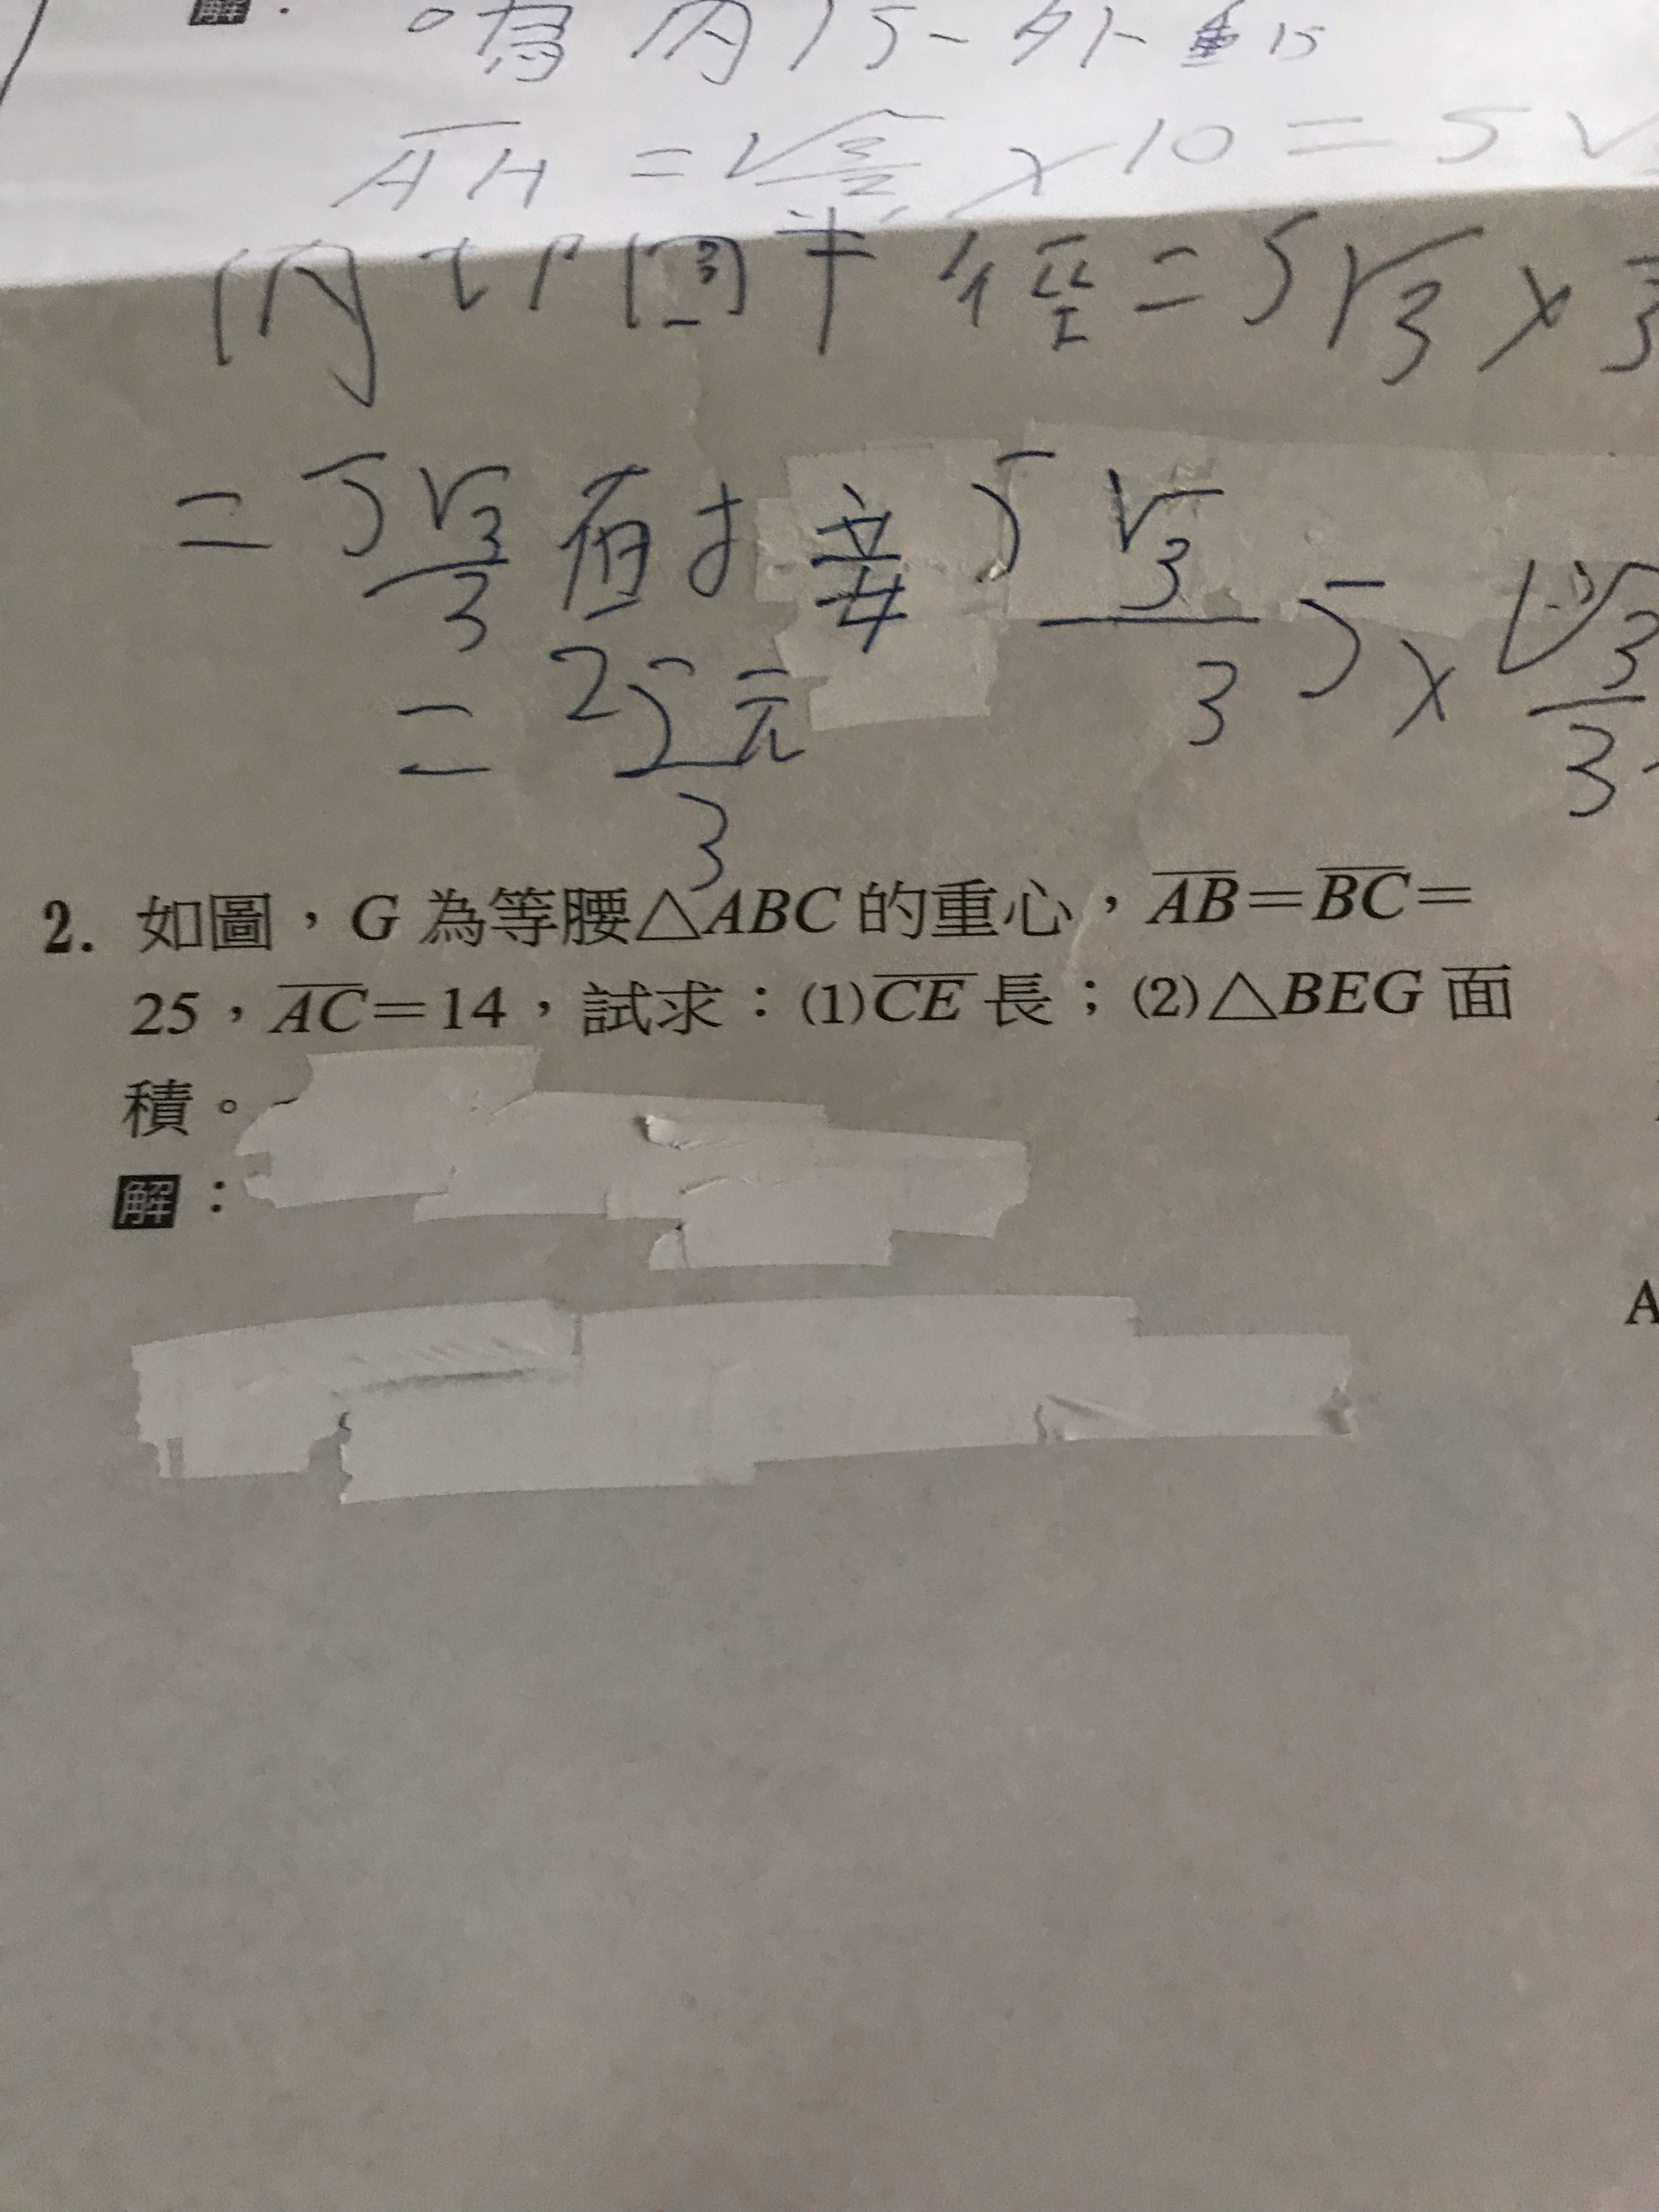 解：
AH = √3/2 × 10 = 5√
內切圓半徑 = 5√3 ×
= 5√3/3 5√3/3 5 × √3/3
= 25π/3
2. 如圖，G 為等腰△ABC 的重心，AB＝BC＝
25，AC＝14，試求：(1)CE 長；(2)△BEG 面
積。
解：
A